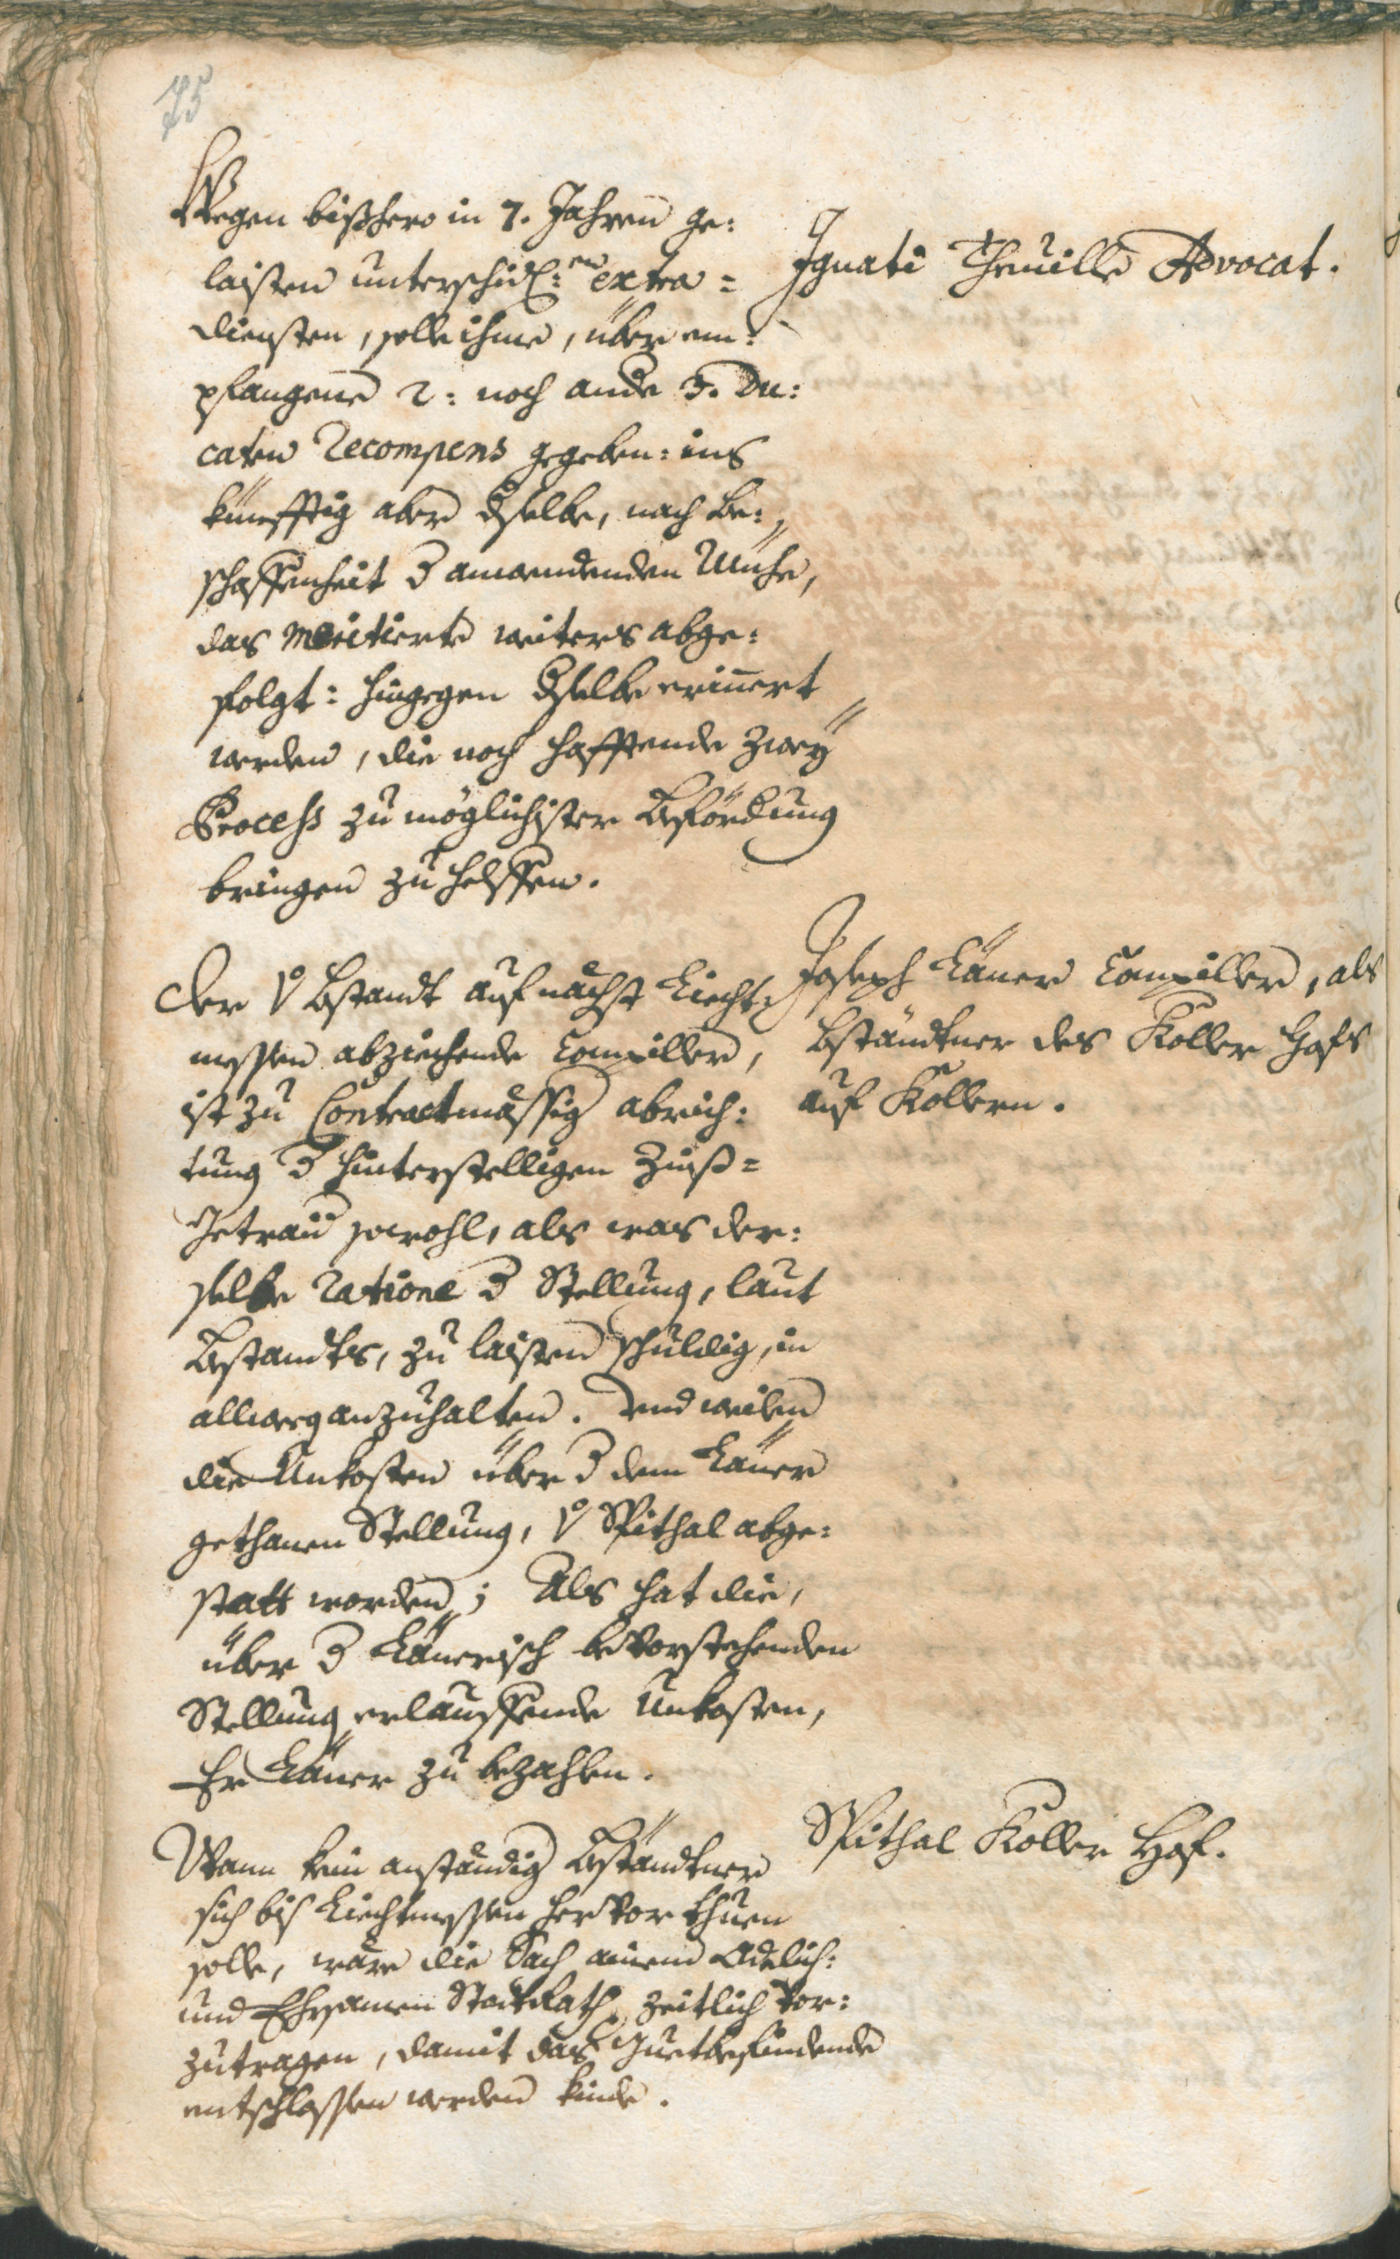 75
Wegen bißhero in 7. Jahren ge:
laisten unterschidl:en extra=
diensten, solle ihme, über em:
pfangene 2: noch andere 3. Du:
caten Recompens gegeben: ins
künfftig aber dselbe, nach be:
schaffenheit d anwendenden Mühe,
das Meritierte weiters abge:
folgt: hingegen dselbe erinnert
werden, die noch hafftende zwey
Process zu möglichister Befördung
bringen zu helffen.
Ignati Theuille Advocat.
Der v Bstandt auf nächst Liecht:
messen abziechende
ist zu Contractmässig abrich:
tung d hinterstelligen Zinß=
Getraid sowohl, als was der:
selbe ratione d Stellung, laut
Bstandts, zu laisten schuldig, in
allweg anzuhalten. Und weilen
die Unkosten über d dem
gethanen Stellung, v Spithal abge:
statt worden; Als hat die,
über d bevorstehenden
Stellung erlauffende Unkosten,
Er zu bezahlen.
Joseph als
Bständtner des Koller Hofs
auf Kollern.
Wann kein anständig Bständtner
sich bis Liechtmessen hervor thuen
solle, wäre die Sach einem Adelich:
und Ehrsamen StattRath zeitlich vor:
zutragen, damit das Guetbefindende
entschlossen werden kinde.
Spithal Koller Hof.